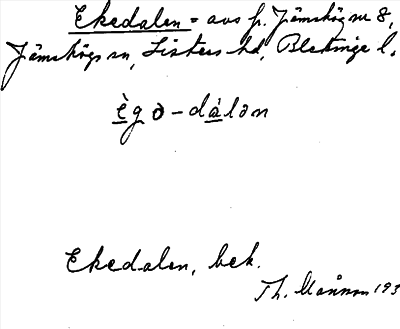 Ekedalen = avs p. Jämshög nr 8,
Jämshögs sn, Listers hd, Blekinge l.
ègə-dàlən
Ekedalen, bek.
Th. Månsson 193